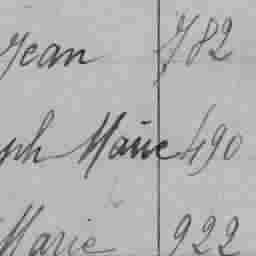 Jean 782
ph Marie 490
Marie 922